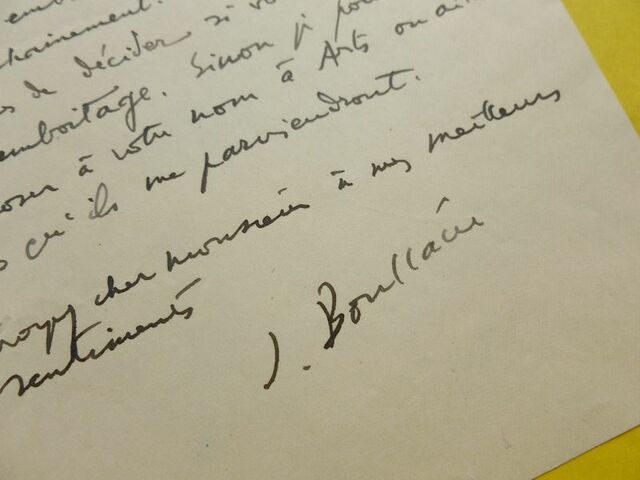 emb
hainement.
de décider si vo
emboitage. Sinon je pou
oser à votre nom à Arts ou ai
qu'ils me parviendront.
royez cher monsieur à mes meilleurs
sentiments
J. Boullaire